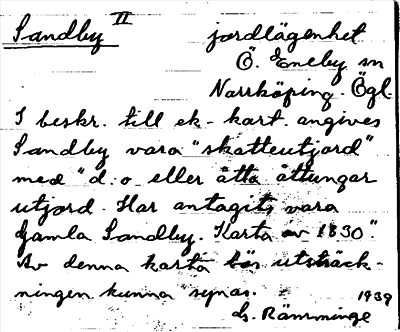 Sandby II jordlägenhet
Ö. Eneby sn
Norrköping. Ögl.
I beskr. till ek-kart. angives
Sandby vara "skatteutjord"
med "d. o eller åtta åttungar
utjord. Har antagits vara
Gamla Sandby. Karta av 1830".
Av denna karta bör utsträck-
ningen kunna synas.
1939
G. Rämminge